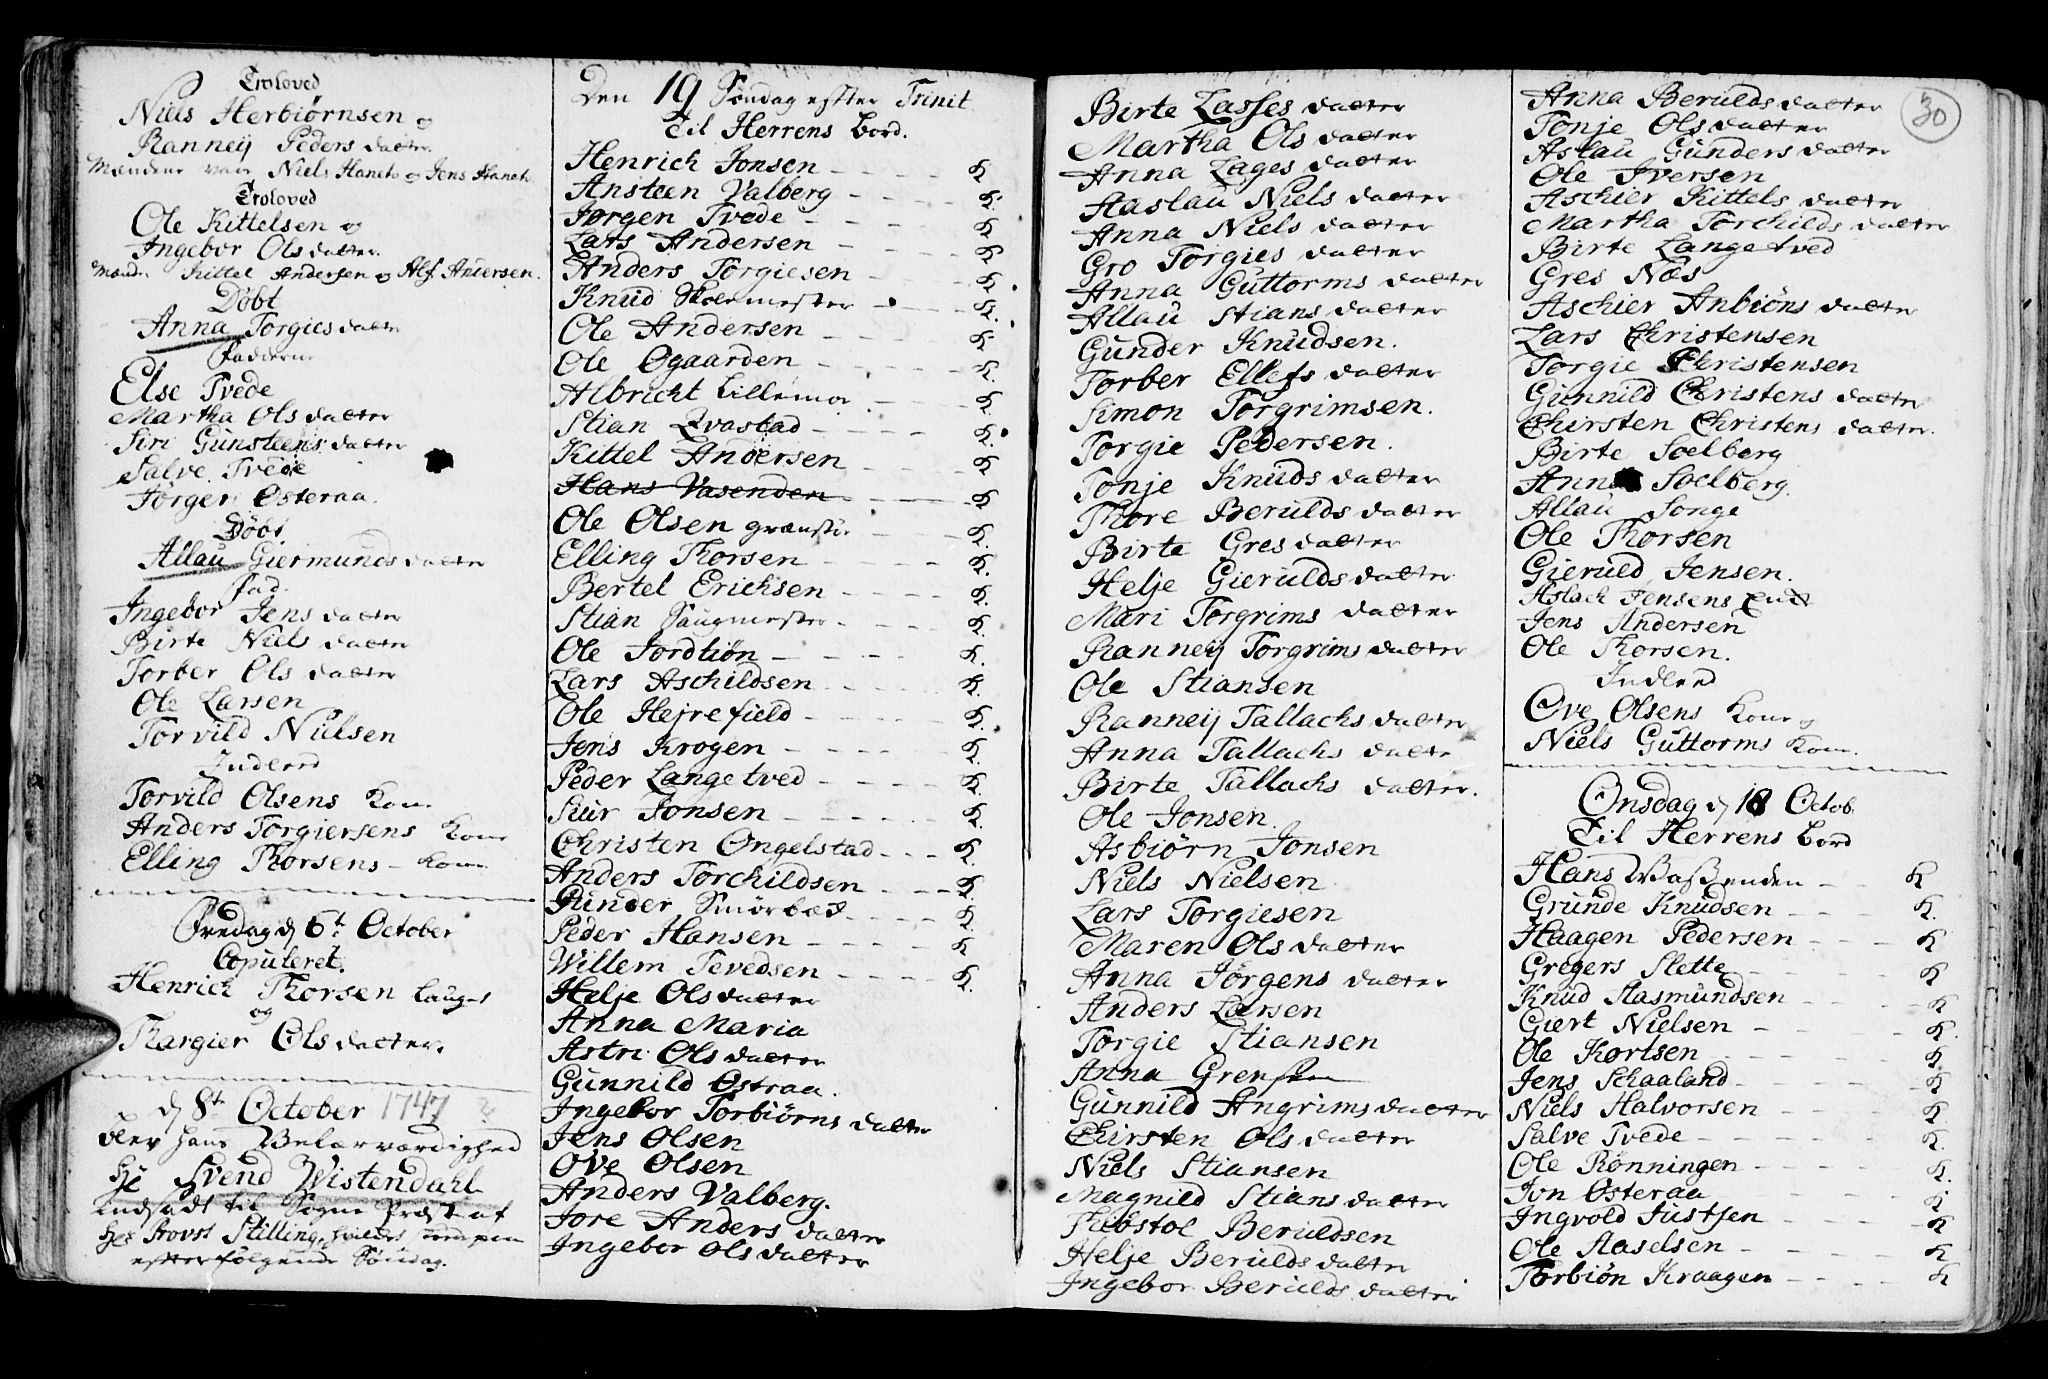 Troloved
Niels Herbiørnsen og
Ranneij Peders datter.
Mændene var Niels Haneto og Jens Haneto
Troloved
Ole Kittelsen og
Ingebor Ols datter.
Mænd. Kittel Andersen og Alf Andersen.
Døbt
Anna Torgies datter
Fadderne
Else Tvede
Martha Ols datter
Siri Gunsteens datter
Salve Tvede
Jørgen Østeraa.
Døbt.
Allau Giermunds datter
Fad.
Ingebor Jens datter
Birte Niels datter
Torber Ols datter
Ole Larsen
Torvild Nielsen
Indleed
Torvild Olsens Kone
Anders Torgiersens Kone
Elling Thorsens Kone
Fredag d 6t October
Copuleret.
Henrich Thorsen
og
Thargier Ols datter.
d 8t October 1747 ?
blev hans Velærværdighed
Hr Svend Wistendahl
indsadt til Sogne Præst af
Hr Provst Stilling,
efterfølgende Søndag.
Den 19 Søndag efter Trinit
Til Herrens Bord.
Henrich Jonsen - - - - K
Ansteen Valberg - - - - K.
Jørgen Tvede - - - K
Lars Andersen - - - K
Anders Torgiesen - - - K.
Knud Skoemester - - K.
Ole Andersen - - - - K
Ole Øgaarden - - - - K.
Albricht Lillemoe - - - K
Stian Qvastad - - - - K.
Kittel Andersen - - - K
Hans Vasenden - - - K
Ole Olsen - - K.
Elling Thorsen - - - - K.
Bertel Erichsen - - - - K.
Stian Saugmester - - - K.
Ole Jordtiøn - - - - K.
Lars Aschildsen - - - - K.
Ole Hejrefield - - - - K
Jens Krogen - - - - K.
Peder Langetved - - - - K
Siur Jonsen - - - - K.
Christen Ongelstad - - - K.
Anders Torchildsen - - - K.
Gunder Smørbæk - - - K
Peder Hansen - - - - K
Willem Tevedsen - - - - K.
Helje Ols datter
Anna Maria
Astri Ols datter
Gunnild Østraa.
Ingebor Torbiørns datter
Jens Olsen
Ove Olsen
Anders Valberg.
Jore Anders datter
Ingebor Ols datter
Birte Lasses datter
Martha Ols datter
Anna Lages datter
Aaslau Niels datter
Anna Niels datter
Gro Torgies datter
Anna Guttorms datter
Allau Stians datter
Gunder Knudsen.
Torber Ellefs datter
Simon Torgrimsen.
Torgie Pedersen.
Tonje Knuds datter
Thore Berulds datter
Birte Gres datter
Helje Gierulds datter
Mari Torgrims datter
Ranneij Torgrims datter
Ole Stiansen
Ranneij Tallachs datter
Anna Tallachs datter
Birte Tallachs datter.
Ole Jonsen.
Asbiørn Jonsen
Niels Nielsen
Lars Torgiesen
Maren Ols datter
Anna Jørgens datter
Anders Larsen
Torgie Stiansen
Anna
Gunnild Angrims datter
Chirsten Ols datter
Niels Stiansen
Magnild Stians datter
Kiøstol Beruldsen
Helje Berulds datter
Ingebor Berulds datter
30
Anna Berulds datter
Tonje Ols datter
Aslau Gunders datter
Ole Iversen
Aschier Kittels datter
Martha Torchilds datter
Birte Langetved
Gres Næs
Aschier Anbiøns datter
Lars Christensen
Torgie Christensen
Gunnild Christens datter
Chirsten Christens datter.
Birte Soelberg
Anna Soelberg.
Allau Songe
Ole Thorsen
Gieruld Jensen.
Aslach Jensens
Jens Andersen
Ole Thorsen.
Indleed
Ove Olsens Kone og
Niels Guttorms Kone.
Onsdag d 18 Octob.
Til Herrens Bord
Hans Waßenden - - K
Grunde Knudsen - - - K.
Haagen Pedersen - - - K
Gregers Slette - - - - K
Knud Aasmundsen - - - K
Giert Nielsen - - - - K.
Ole Kortsen - - - - K.
Jens Schaaland - - - - K
Niels Halvorsen - - - K
Salve Tvede - - - - - K.
Ole Rønningen - - - - K.
Jon Østeraa - - - - K
Ingvold Justsen - - - K
Ole Aaselsen - - - - K
Torbiøn Kraagen - - - K